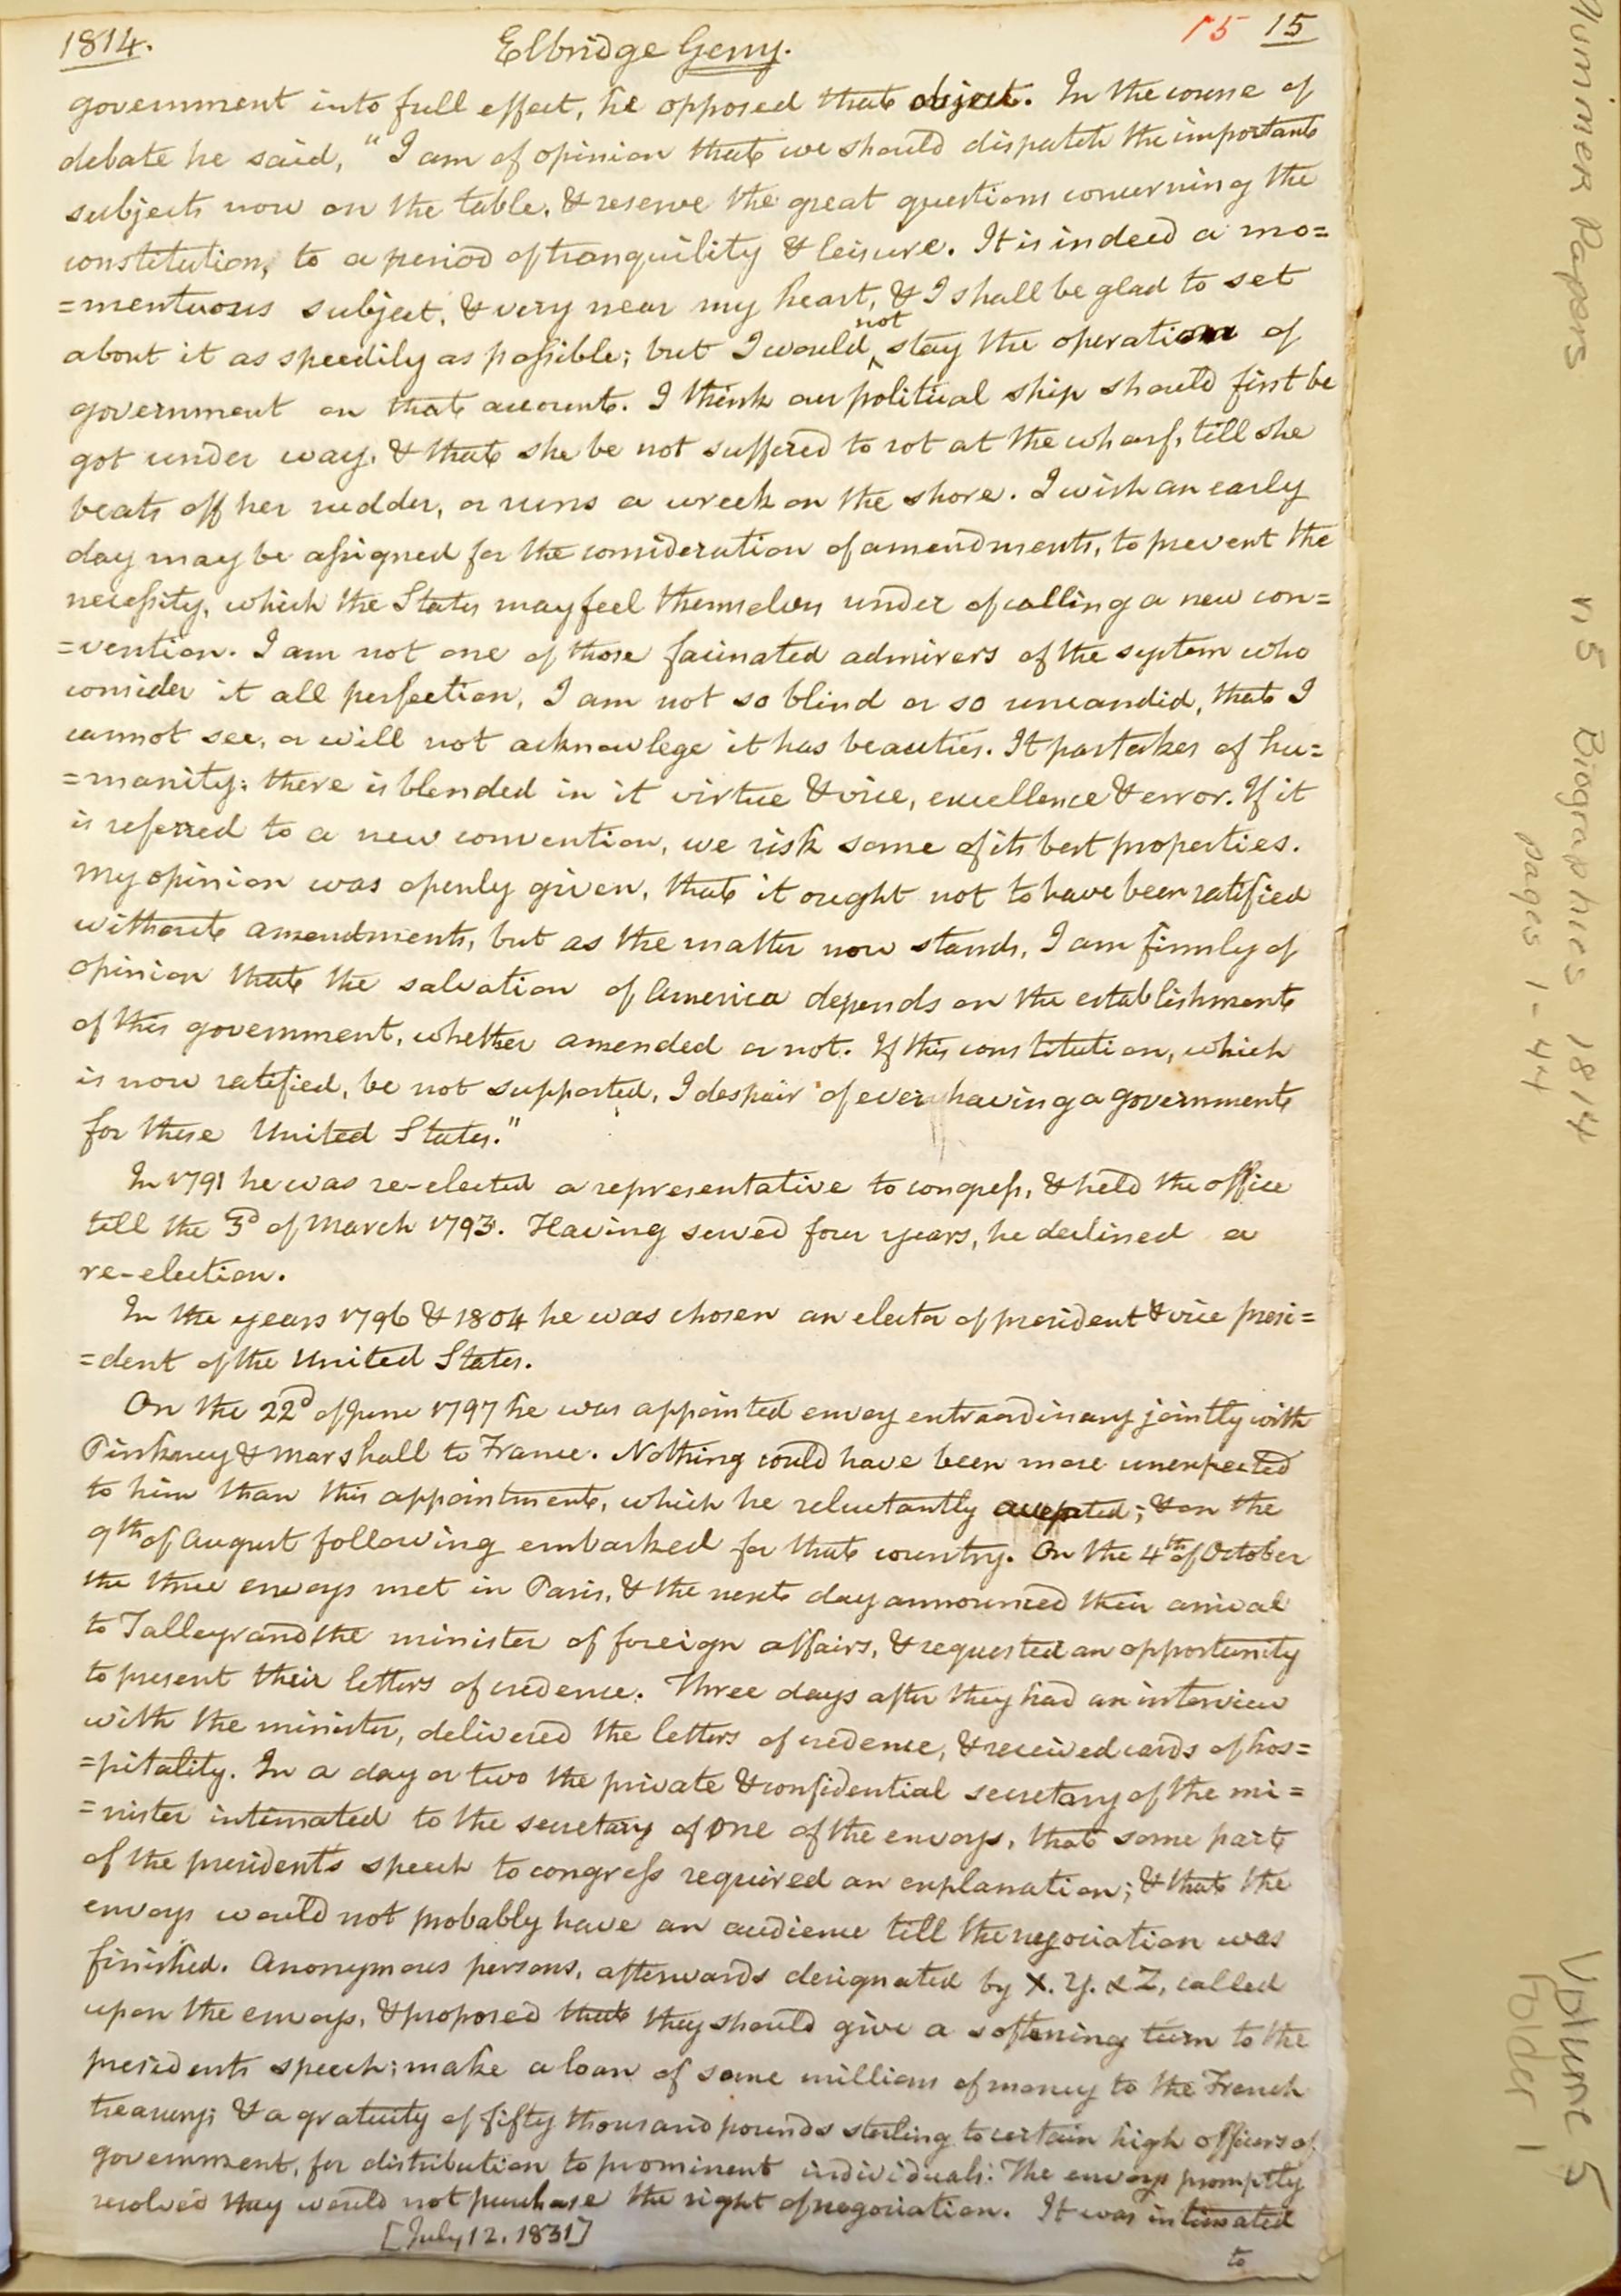 1814. Elbridge Gerry. 15 15
government into full effect, he opposed that object. In the course of
debate he said, "I am of opinion that we should dispatch the important
subjects now on the table, & reserve the great questions concerning the
constitution, to a period of tranquility & leisure. It is indeed a mo=
=mentuous subject, & very near my heart, & I shall be glad to set
about it as speedily as possible; but I would not stay the operation of
government on that account. I think our political ship should first be
got under way, & that she be not suffered to rot at the wharf, till she
beats off her rudder, or runs a wreck on the shore. I wish an early
day may be assigned for the consideration of amendments, to prevent the
necessity, which the States may feel themselves under of calling a new con=
=vention. I am not one of those facinated admirers of the system who
consider it all perfection, I am not so blind or so uncandid, that I
cannot see, or will not acknowlege it has beauties. It partakes of hu=
=manity: there is blended in it virtue & vice, excellence & error. If it
is referred to a new convention, we risk some of its best properties.
My opinion was openly given, that it ought not to have been ratified
without amendments, but as the matter now stands, I am firmly of
opinion that the salvation of America depends on the establishment
of this government, whether amended or not. If this constitution, which
is now ratified, be not supported, I despair of ever having a government
for these United States."
In 1791 he was re-elected a representative to congress, & held the office
till the 3d of March 1793. Having served four years, he declined a
re-election.
In the years 1796 & 1804 he was chosen an elector of president & vice presi=
=dent of the United States.
On the 22d of June 1797 he was appointed envoy extraordinary jointly with
Pinkney & Marshall to France. Nothing could have been more unexpected
to him than this appointment, which he reluctantly accepted; & on the
9th of August following embarked for that country. On the 4th of October
the three envoys met in Paris, & the next day announced their arrival
to Talleyrand the minister of foreign affairs, & requested an opportunity
to present their letters of credence. Three days after they had an interview
with the minister, delivered the letters of credence, & received cards of hos=
=pitality. In a day or two the private & confidential secretary of the mi=
=nister intimated to the secretary of one of the envoys, that some part
of the president's speech to congress required an explanation; & that the
envoys would not probably have an audience till the negociation was
finished. Anonymous persons, afterwards designated by X. Y. & Z, called
upon the envoys, & proposed that they should give a softening turn to the
presidents speech; make a loan of some millions of money to the French
treasury; & a gratuity of fifty thousand pounds sterling to certain high officers of
government, for distribution to prominent individuals. The envoys promptly
resolved they would not purchase the right of negociation. It was intimated
[July 12. 1831]
to
Plummer Papers
V. 5 Biographies 1814
pages 1-44
Volume 5
Folder 1